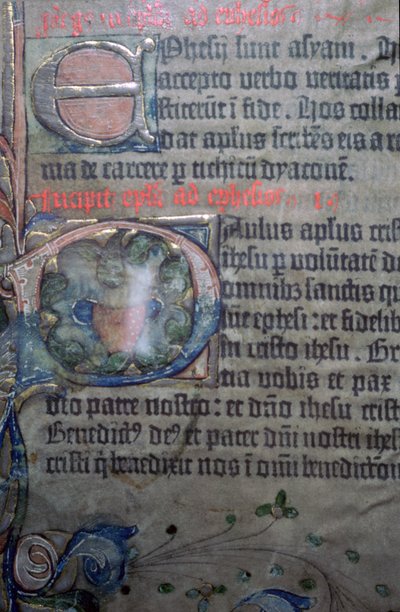 ad ephesios
Ephesij sunt asyani. H
accepto verbo veritatis p
stiterūt ī fide. Hos colla
dat apl̄us scrib̄es eis a ro
ma de carcere p̱ tichicū dyaconē.
Incipit ep̄l̄a ad ephesios
Paulus apl̄us crist
ihesu p̱ volūtatē d
omnibꝫ sanctis qu
sūt ephesi: et fidelib
in cristo ihesu. Gr
tia vobis et pax
deo patre nostro: et dn̄o ihesu crist
Benedictꝰ deꝰ et pater dn̄i nostri ihes
cristi q̄ benedixit nos ī om̄i benedictōn